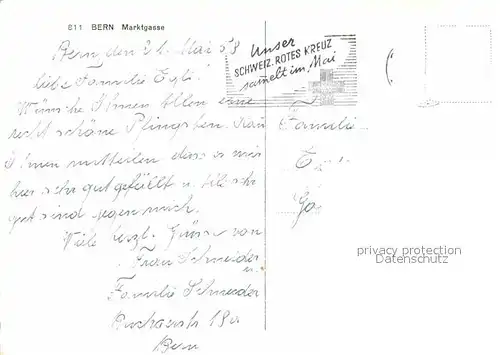 811 BERN Marktgasse
Bern, den 21. Mai 53
Liebe Familie Egli!
Wünsche Ihnen Allen eine
recht schöne Pfingsten. Kann
Ihnen mitteilen dass es mir
hier sehr gut gefällt u. alle sehr
gut sind gegen mich.
Viele herzl. Grüsse von
Frau Schneider
u.
Familie Schneider
19
Bern
Unser
SCHWEIZ. ROTES KREUZ
sammelt im Mai
Familie
E
Go
privacy protection
Datenschutz